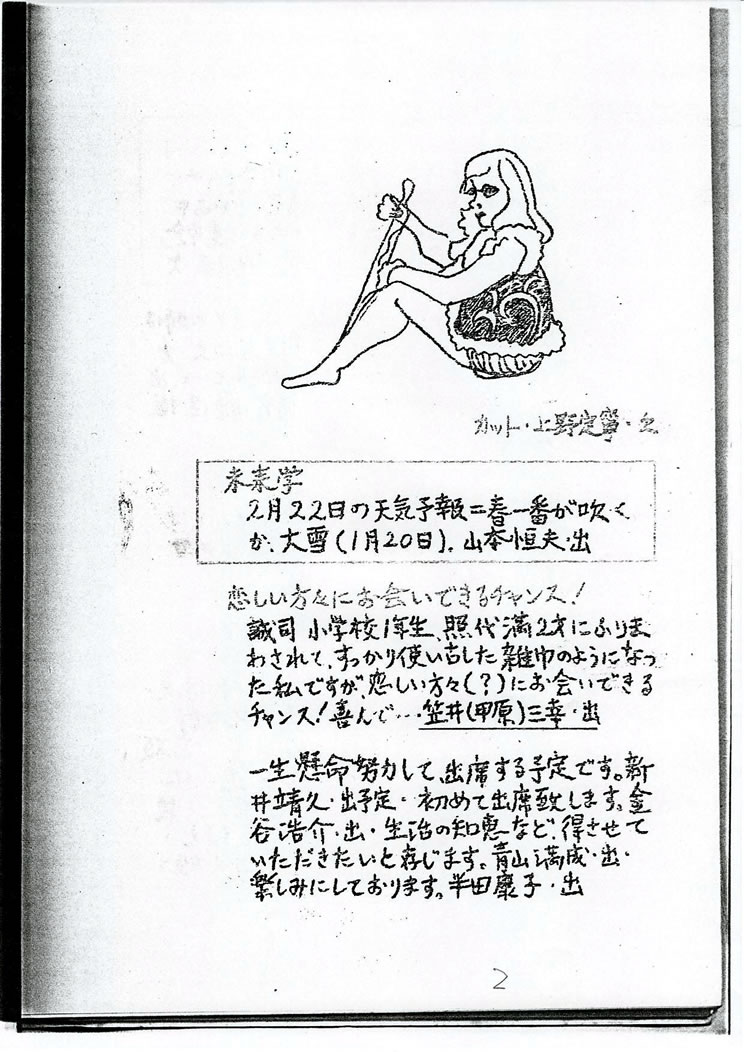 カット・上野定寧・欠
未来学
2月22日の天気予報=春一番が吹く
か、大雪(1月20日)。山本恒夫・出
恋しい方々にお会いできるチャンス!
誠司 小学校1年生、照代 満2才にふりま
わされて、すっかり使い古した雑巾のようになっ
た私ですが、恋しい方々(?)にお会いできる
チャンス!喜んで…・笠井(甲原)三幸・出
一生懸命努力して、出席する予定です。新
井靖久・出予定・初めて出席致します。金
谷浩介・出・生活の知恵など、得させて
いただきたいと存じます。青山満成・出・
楽しみにしております。半田康子・出
2